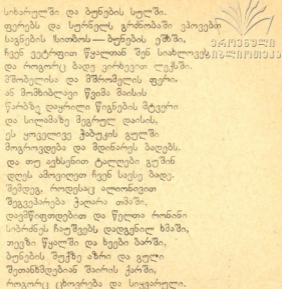 სიხარულში და ბუნების სულში.
ფერებს და სურნელს გრძნობაში ვპოვებთ
საგნების სითბოს—ბუნების ეშხში,
ჩვენ ვეტრფით წყალთან შენ სიახლოვეს
და როგორც ბადე ვირხევთ ლექსში.
მშობელისა და მშრომელის ფერი.
ან მომხიბლავი წვიმა მაისის
წარბზე დაყრილი წიგნების მტვერი
და სილამაზე მეგრულ დაისის,
ეს ყოველივე ჭაბუკის გულში
მოგროვდება და მდინარეს ბადებს.
და თუ ავხსენით ტალღები გუშინ
დღეს ამოვიღეთ ჩვენ სავსე ბადე.
შემდეგ, როდესაც ალიონივით
შეგვეპარება ჭაღარა თმაში,
დავმწიფდებით და წელთა რონინი
სიბრძნეს ჩაუშვებს დადგენილ ხმაში,
თევზი წყალში და ხვები ბარში,
ბუნების შუქზე აზრი და გული
შეთანხმდებიან შაირის ქარში,
როგორც ცხოვრება და სიყვარული.
ეროვნული
ბიბლიოთეკა